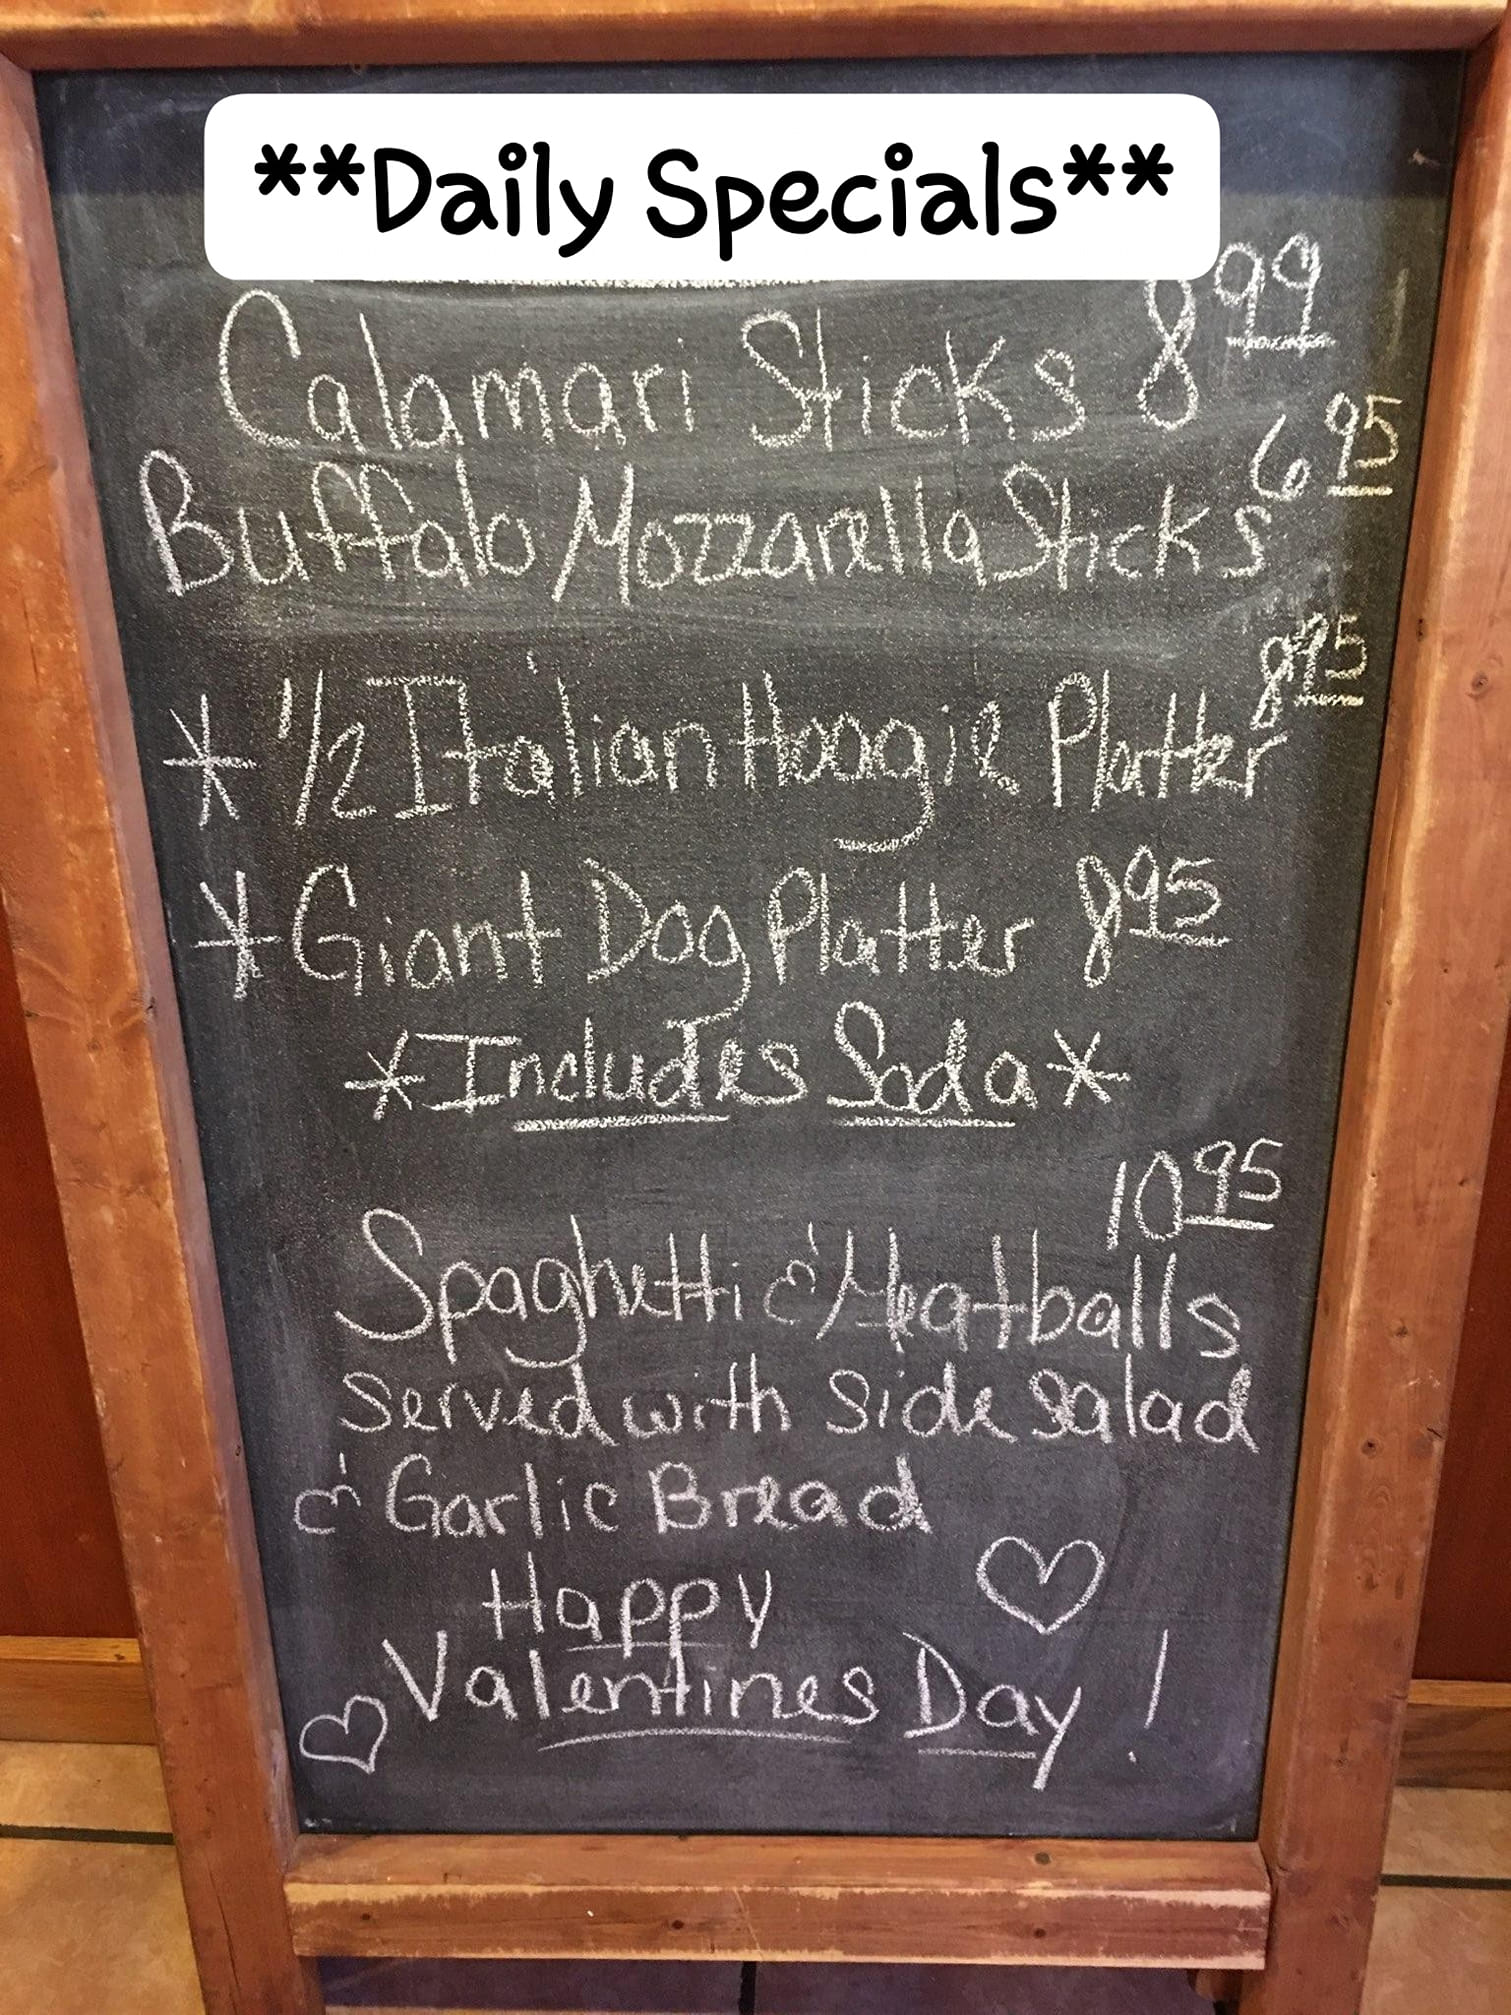 **Daily Specials**
Calamari Sticks 8 99
6 95
Buffalo Mozzarella Sticks
8 95
* 1/2 Italian Hoagie Platter
* Giant Dog Platter 8 95
*Includes Soda*
10 95
Spaghetti & Meatballs
Served with Side Salad
& Garlic Bread
Happy
Valentines Day!